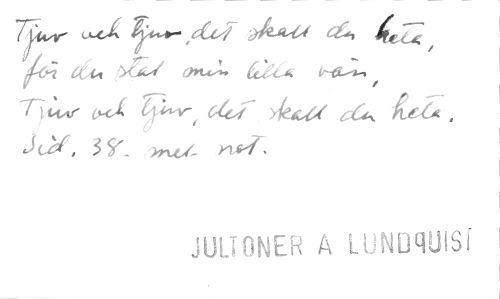 Tjuv och tjuv, det skall du heta,
för du stal min lilla vän,
Tjuv och tjuv, det skall du heta.
Sid. 38. mel. not.
JULTONER A LUNDQUIST